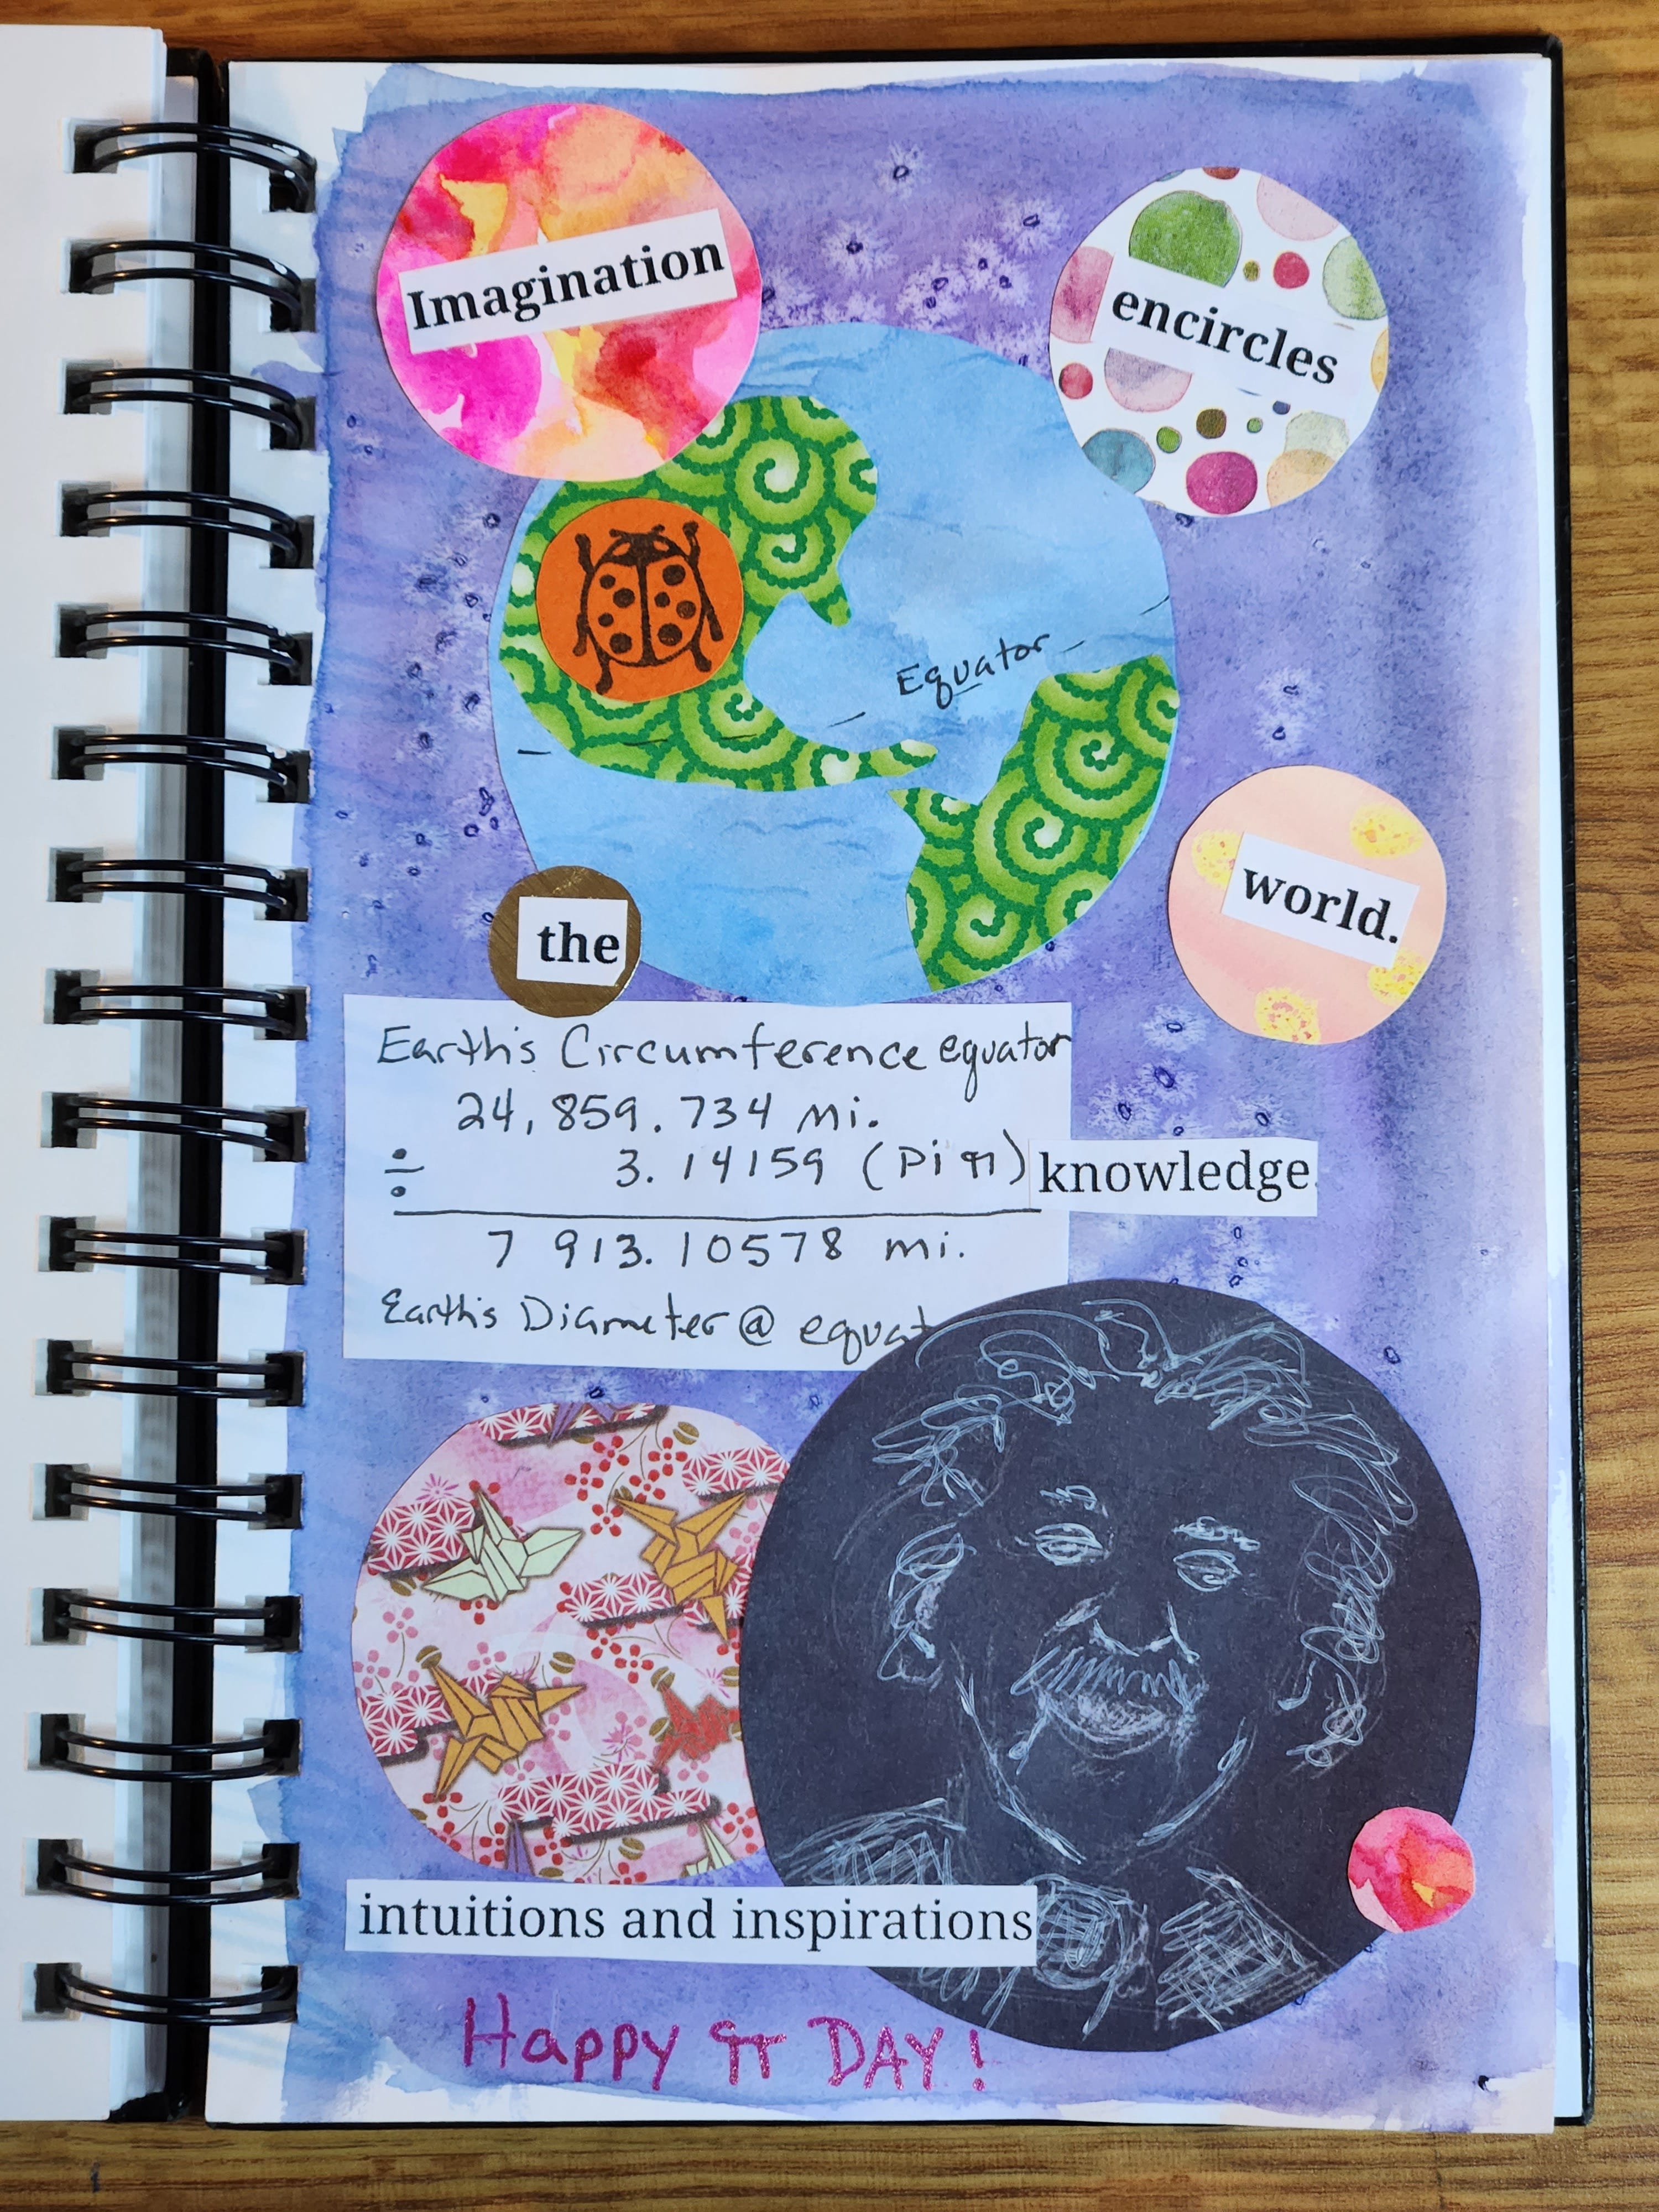 Imagination
encircles
Equator
the
world.
Earth's Circumference equator
24,859.734 mi.
÷ 3.14159 (Pi π)
knowledge
7 913.10578 mi.
Earth's Diameter @ equat
intuitions and inspirations
Happy π DAY!